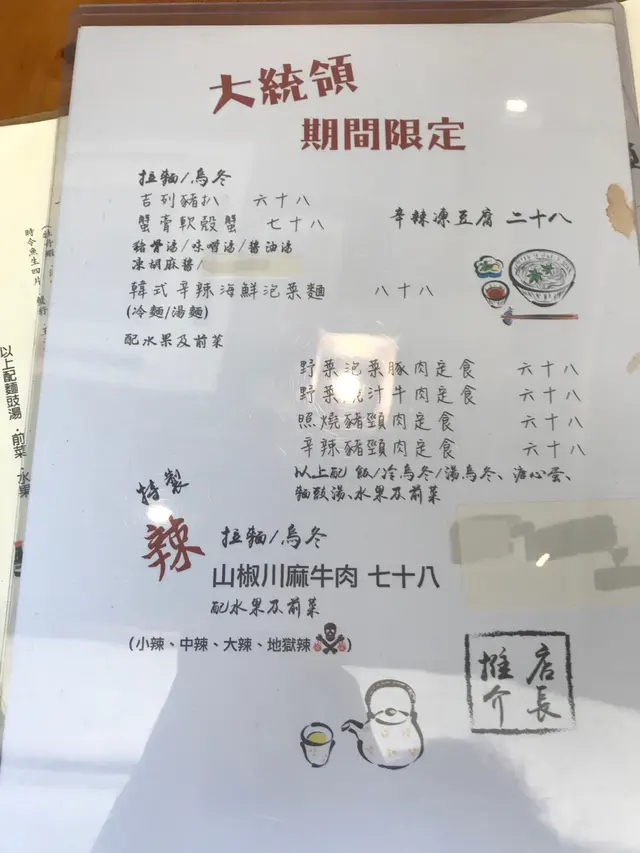 大統領
期間限定
拉麵/烏冬
吉列豬扒 六十八
蟹膏軟殼蟹 七十八
豬骨湯/味噌湯/醬油湯
凍胡麻醬/
韓式辛辣海鮮泡菜麵 八十八
(冷麵/湯麵)
配水果及前菜
辛辣凍豆腐 二十八
野菜泡菜豚肉定食 六十八
野菜燒汁牛肉定食 六十八
照燒豬頸肉定食 六十八
辛辣豬頸肉定食 六十八
以上配 飯/冷烏冬/湯烏冬、溏心蛋、
麵豉湯、水果及前菜
特製
辣
拉麵/烏冬
山椒川麻牛肉 七十八
配水果及前菜
(小辣、中辣、大辣、地獄辣)
店長
推介
時令魚生四片
以上配麵豉湯·前菜·水果